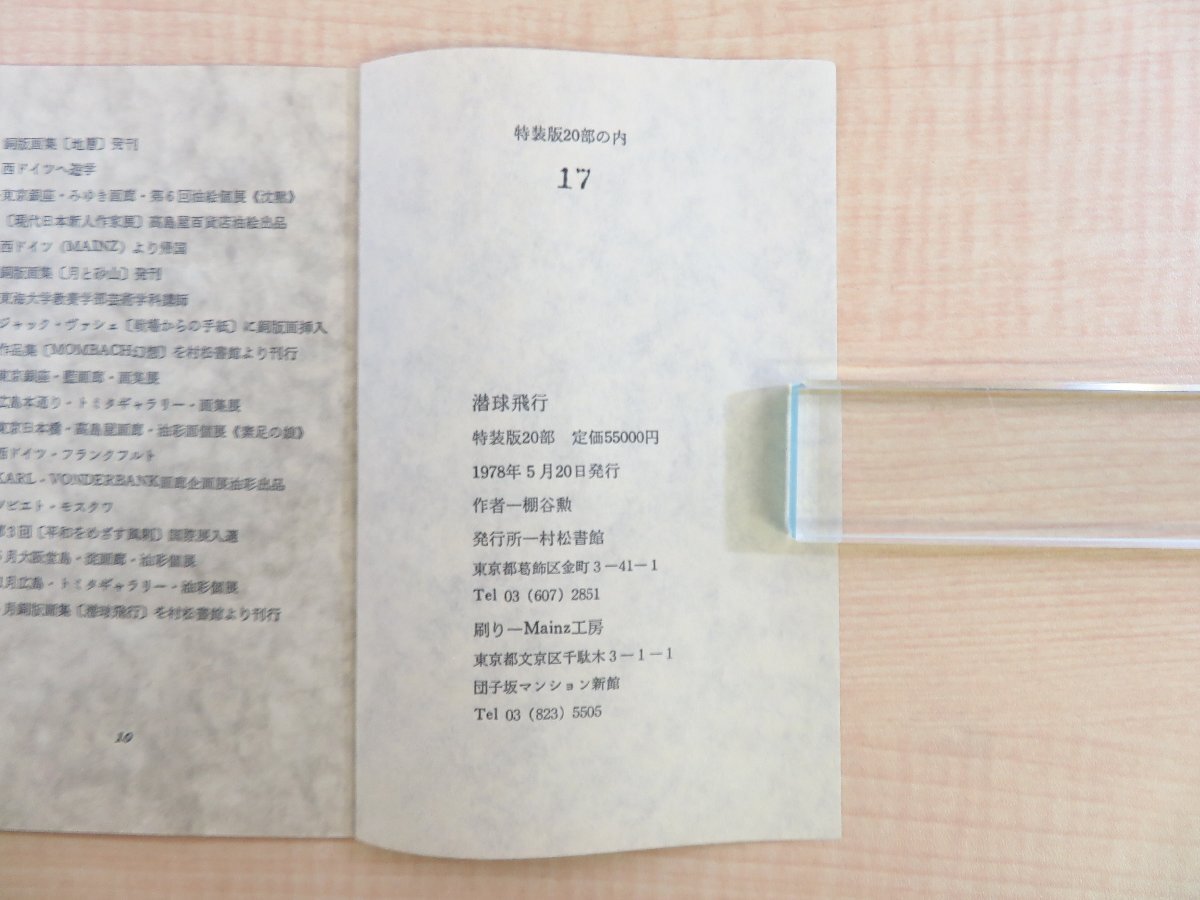 銅版画集〔地層〕発刊
西ドイツへ遊学
東京銀座・みゆき画廊・第6回油絵個展《沈黙》
〔現代日本新人作家展〕高島屋百貨店油絵出品
西ドイツ（MAINZ）より帰国
銅版画集〔月と砂山〕発刊
東海大学教養学部芸術学科講師
ジャック・ヴァシェ〔戦場からの手紙〕に銅版画挿入
作品集〔MOMBACH幻想〕を村松書館より刊行
東京銀座・藍画廊・画集展
広島本通り・トミタギャラリー・画集展
東京日本橋・高島屋画廊・油彩画個展《素足の娘》
西ドイツ・フランクフルト
KARL・VONDERBANK画廊企画展油彩出品
ソビエト・モスクワ
第3回〔平和をめざす風刺〕国際展入選
月大阪堂島・画廊・油彩個展
月広島・トミタギャラリー・油彩個展
月銅版画集〔潜球飛行〕を村松書館より刊行
10
特装版20部の内
17
潜球飛行
特装版20部　定価55000円
1978年5月20日発行
作者―棚谷勲
発行所―村松書館
東京都葛飾区金町3―41―1
Tel 03 (607) 2851
刷り―Mainz工房
東京都文京区千駄木3―1―1
団子坂マンション新館
Tel 03 (823) 5505